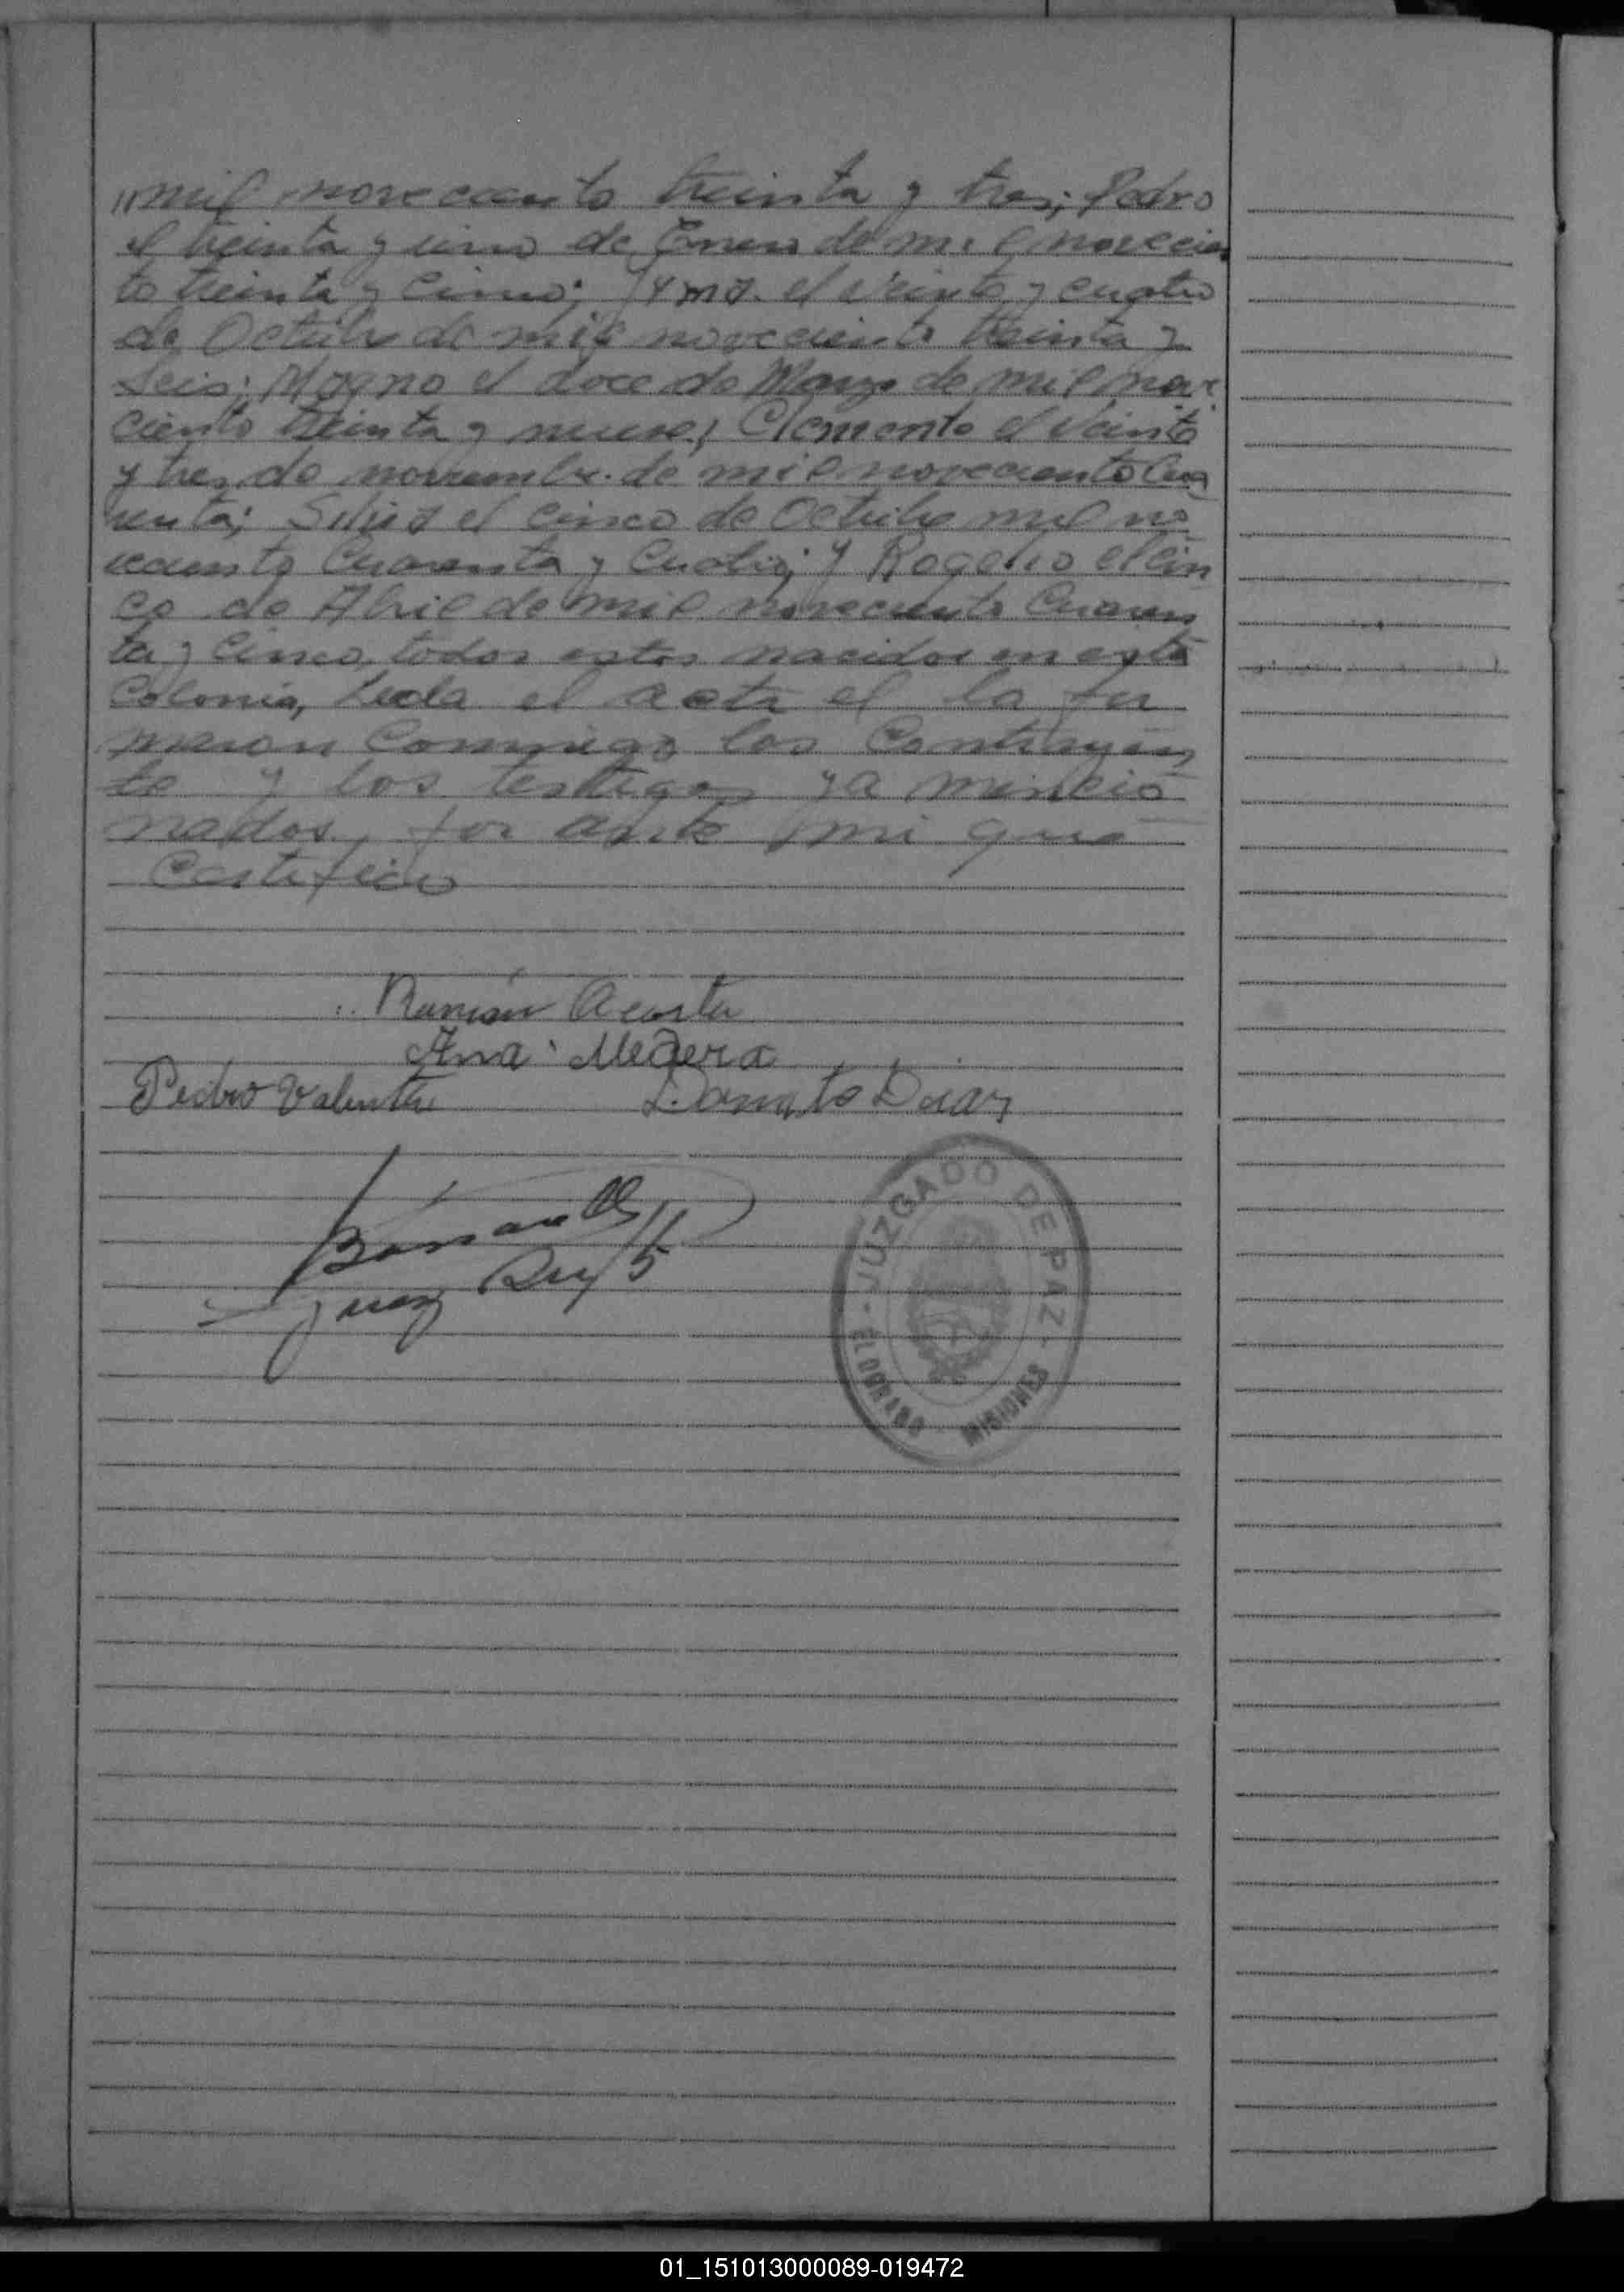 "mil novecciento treinta y tres; Pedro
el treinta y uno de Enero de mil novecien
to treinta y cinco; el veinte y cuatro
de Octubre de mil novecciento treinta y
seis; Magno el doce de Marzo de mil nove
ciento treinta y nueve; Clemente el veinte
y tres de noviembre de mil novecciento cua
renta; el cinco de Octubre mil no
veciento cuarenta y cuatro; y Rogelio el cin
co de Abril de mil novecciento cuaren
ta y cinco, todos estos nacidos en esta
Colonia, Leida el acta el la fir
maron conmigo los contrayen
te y los testigos ya mincio
nados, por ante mi que
Certifico
Ramón Acosta
Ana Medera
Pedro Valente Donato Diaz
Juez
JUZGADO DE PAZ
ELDORADO MISIONES
01_151013000089-019472